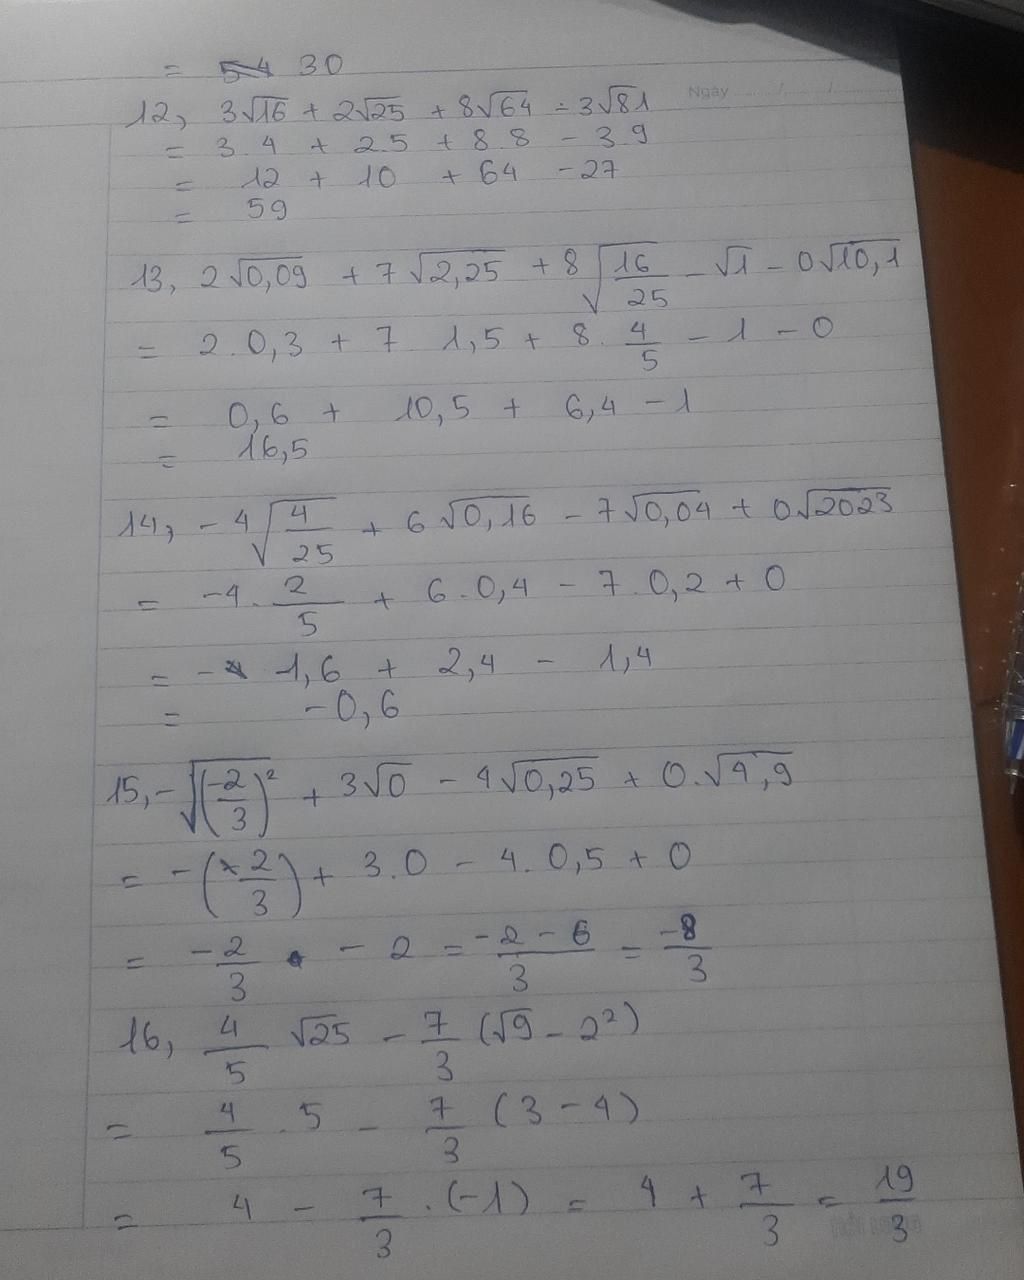 = 30
Ngày ...../...../.....
12, 3√16 + 2√25 + 8√64 - 3√81
= 3.4 + 2.5 + 8.8 - 3.9
= 12 + 10 + 64 - 27
= 59
13, 2√0,09 + 7√2,25 + 8√(16/25) - √1 - 0√10,1
= 2.0,3 + 7 1,5 + 8. 4/5 - 1 - 0
= 0,6 + 10,5 + 6,4 - 1
= 16,5
14, - 4√(4/25) + 6√0,16 - 7√0,04 + 0√2023
= -4. 2/5 + 6.0,4 - 7.0,2 + 0
= - 1,6 + 2,4 - 1,4
= -0,6
15, -√((-2/3)²) + 3√0 - 4√0,25 + 0.√4,9
= -(2/3) + 3.0 - 4.0,5 + 0
= -2/3 - 2 = (-2-6)/3 = -8/3
16, 4/5 √25 - 7/3 (√9 - 2²)
= 4/5 . 5 - 7/3 (3 - 4)
= 4 - 7/3 . (-1) = 4 + 7/3 = 19/3